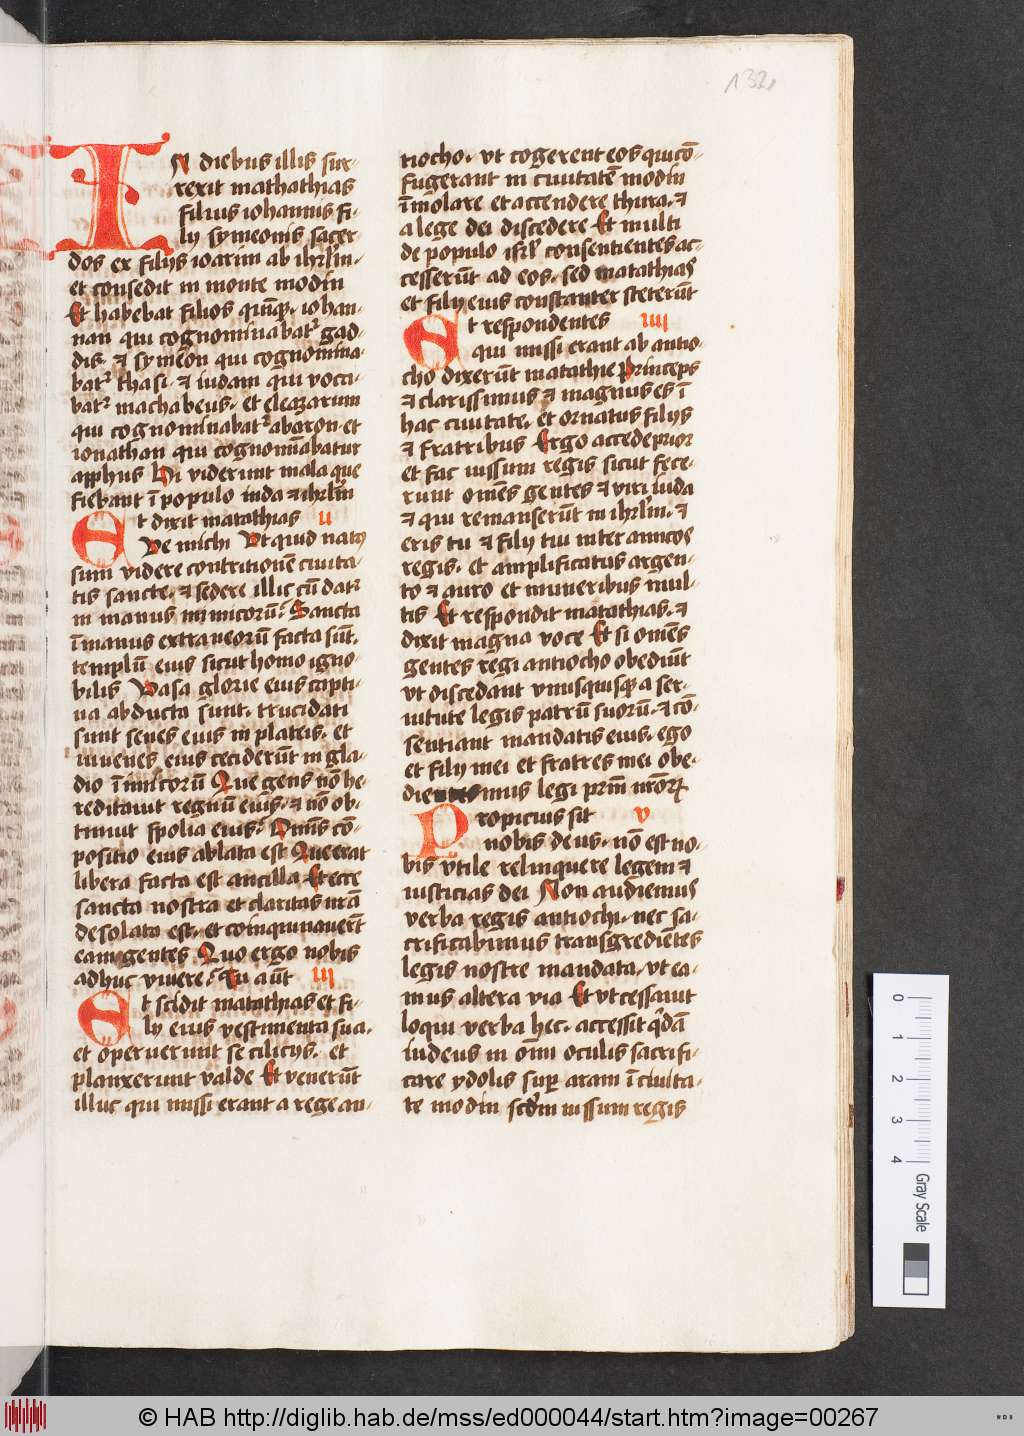 132
IN diebus illis sur-
rexit mathathias
filius iohannis fi-
lij symeonis sacer-
dos ex filijs ioarim ab ihrlm̄.
et consedit in monte modin
Et habebat filios qinqꝫ. iohan-
nan qui cognominabatᷣ gad-
dis. ⁊ symeon qui cognomina-
batᷣ thasi. ⁊ iudam qui voca-
batᷣ machabeus. et eleazarum
qui cognominabatᷣ abaron. et
ionathan qui cognomīabatur
apphus Hi viderunt mala que
fiebant ī populo iuda ⁊ ihrlm̄
Et dixit matathias ii
Ve michi Vt quid natꝰ
sum videre contritionē ciuita-
tis sancte. ⁊ sedere illic cū datᷣ
in manus inimicorū. Sancta
ī manus extraneorū facta sūt.
templū eius sicut homo igno-
bilis Vasa glorie eius capti-
ua abducta sunt. trucidati
sunt senes eius in plateis. et
iuuenes eius ceciderūt in gla-
dio īimicorū Que gens nō he-
reditauit regnū eius. ⁊ nō ob-
tinuit spolia eius. Omīs cō-
positio eius ablata est Que erat
libera facta est ancilla Et ecce
sancta nostra et claritas nrā
desolata est. et coinquinauerūt
eam gentes Quo ergo nobis
adhuc viuere. Tu aūt iii
Et scidit matathias et fi-
lij eius vestimenta sua.
et operuerunt se cilicijs. et
planxerunt valde Et venerūt
illuc qui missi erant a rege an-
tiocho. vt cogerent eos qui cō-
fugerant in ciuitatē modin
īmolare et accendere thura. ⁊
a lege dei discedere Et multi
de populo isrl̄ consentientes ac-
cesserūt ad eos. sed matathias
et filij eius constanter steterūt
Et respondentes iiii
qui missi erant ab antio-
cho dixerūt matathie Princeps
⁊ clarissimus ⁊ magnus es ī
hac ciuitate. et ornatus filijs
⁊ fratribus Ergo accede prior
et fac iussum regis sicut fece-
runt omēs gentes ⁊ viri iuda
⁊ qui remanserūt in ihrlm̄. ⁊
eris tu ⁊ filij tui inter amicos
regis. et amplificatus argen-
to ⁊ auro et muneribus mul-
tis Et respondit matathias. ⁊
dixit magna voce Et si omēs
gentes regi antiocho obediūt
vt discedant vnusquisqꝫ a ser-
uitute legis patrū suorū. ⁊ cō-
sentiant mandatis eius. ego
et filij mei et fratres mei obe-
diemus legi prm̄ nrōꝝ
Propicius sit v
nobis deus. nō est no-
bis vtile relinquere legem ⁊
iusticias dei Non audiemus
verba regis antiochi. nec sa-
crificabimus transgrediētes
legis nostre mandata. vt ea-
mus altera via Et vt cessauit
loqui verba hec. accessit qͥdā
iudeus in om̄i oculis sacrifi-
care ydolis suꝑ aram ī ciuita-
te modin scd̄m iussum regis
0
1
2
3
4
Gray Scale
© HAB http://diglib.hab.de/mss/ed000044/start.htm?image=00267